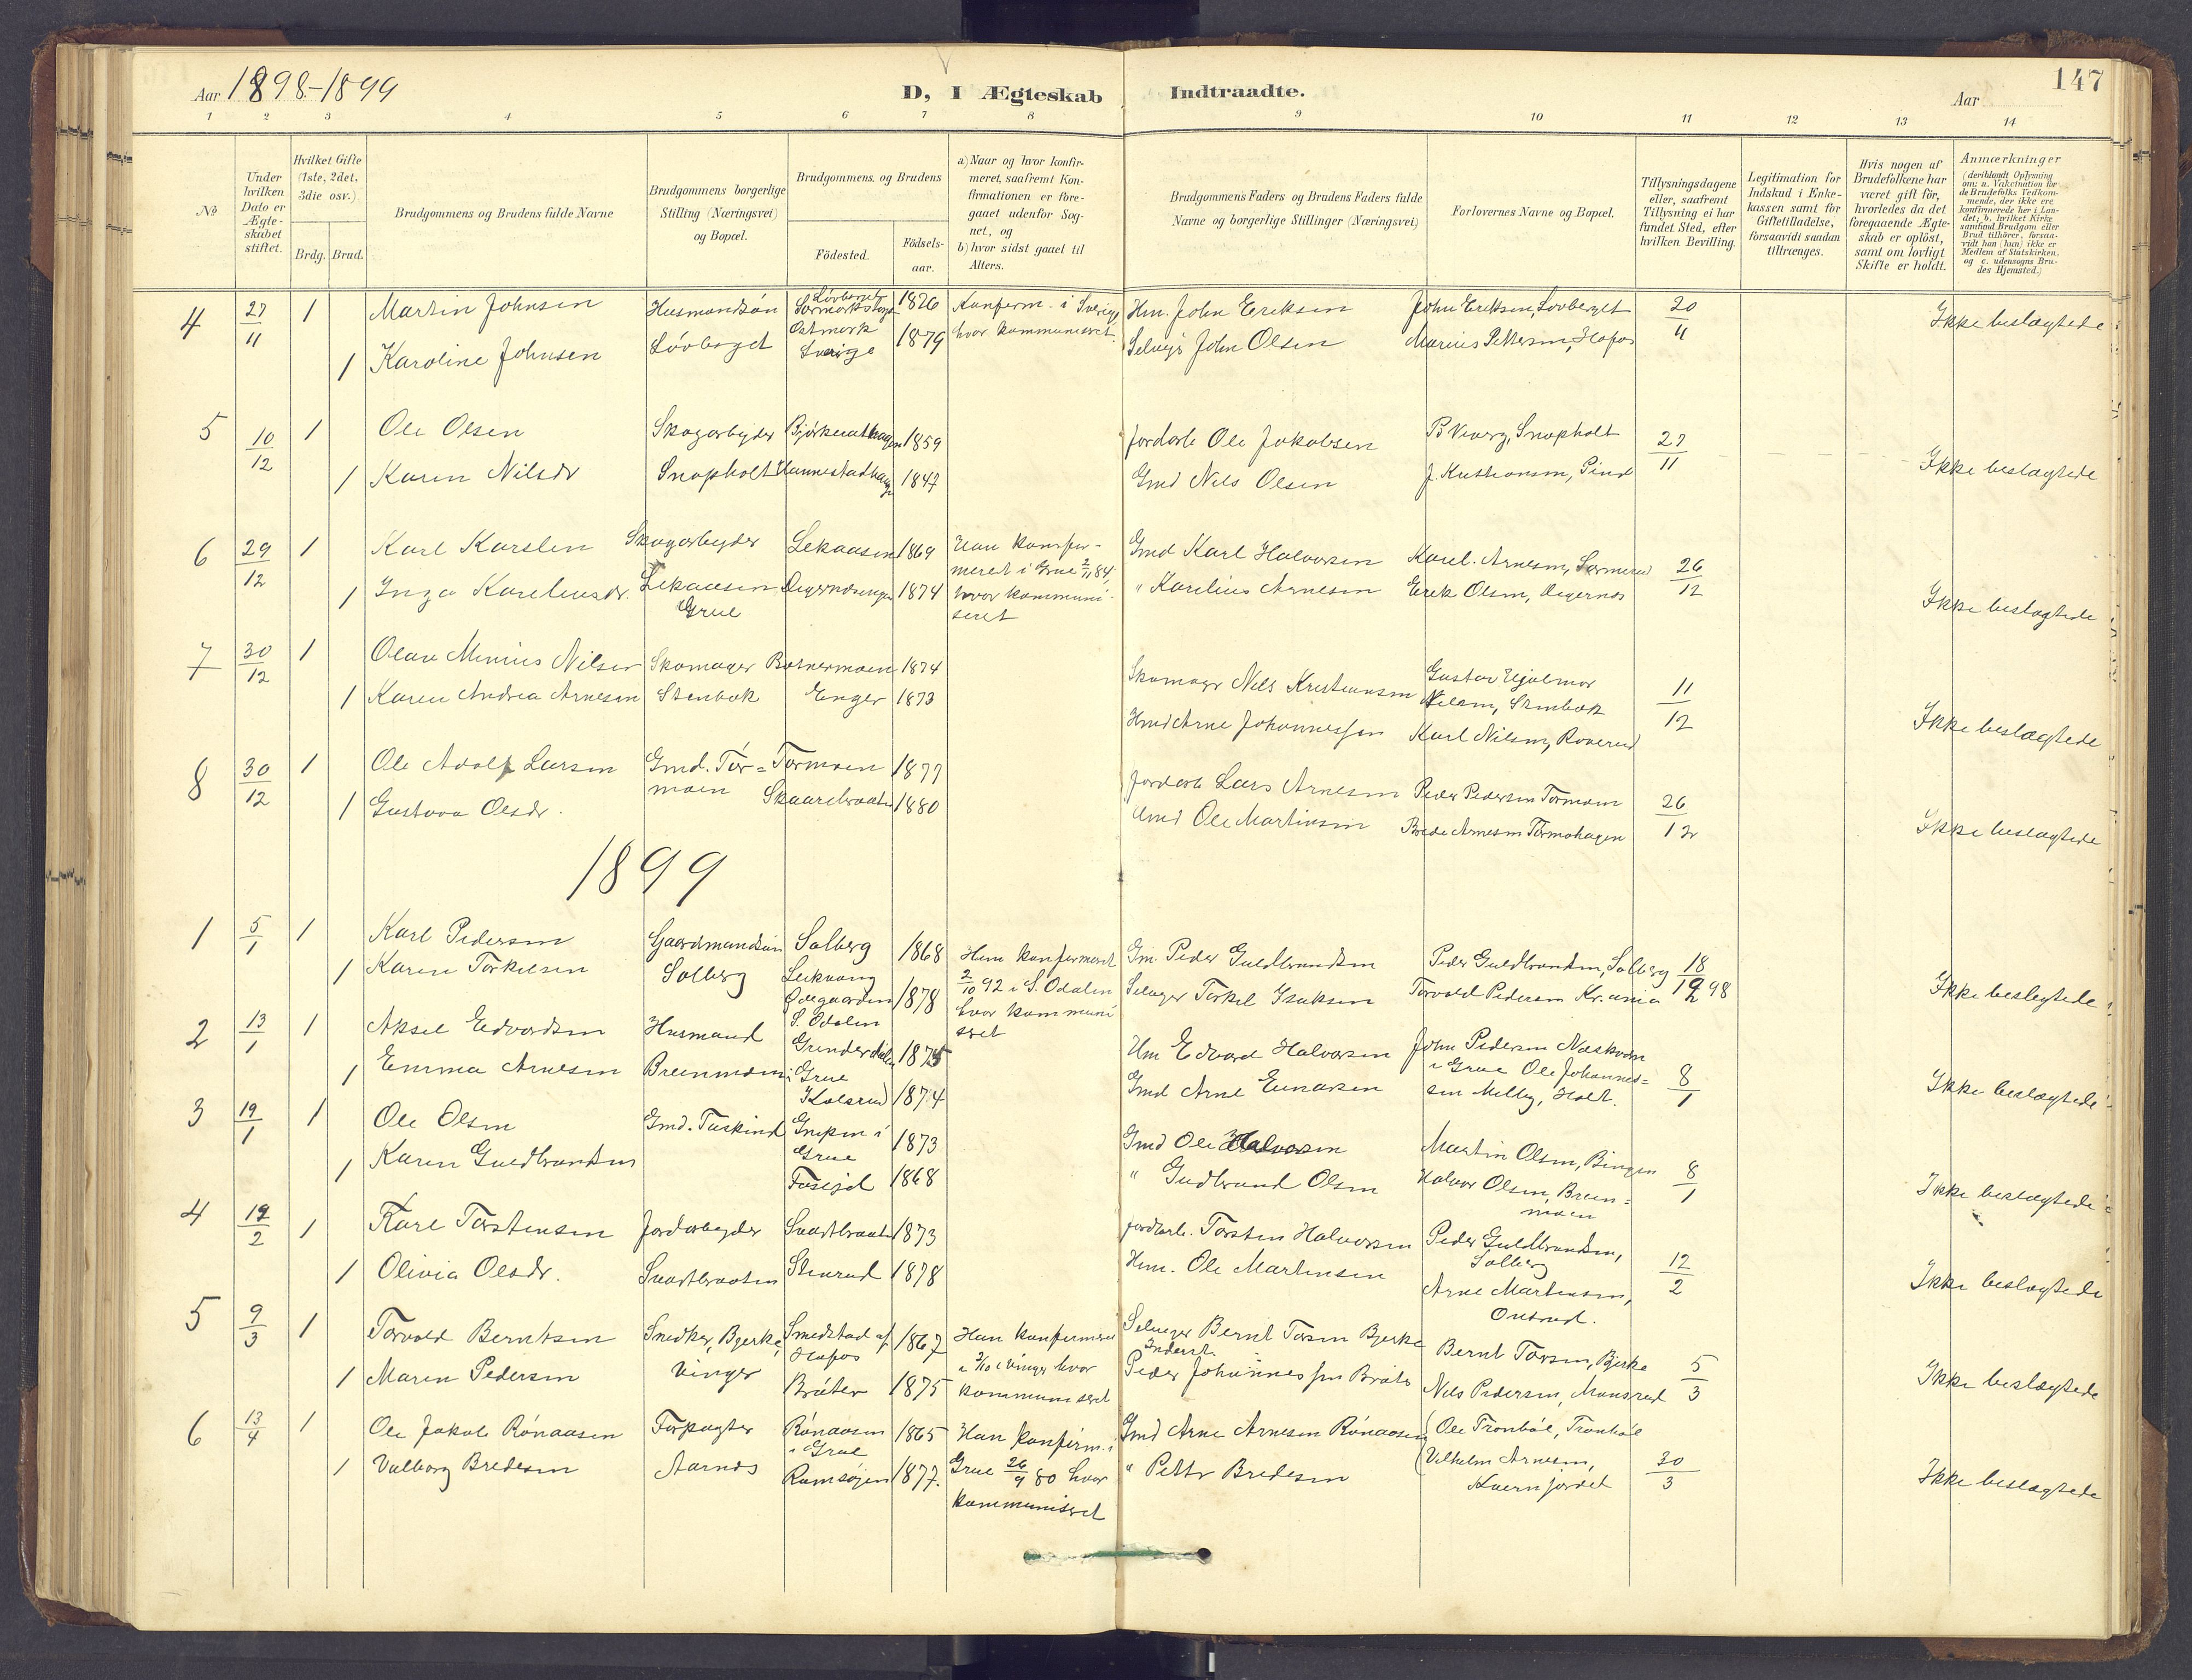 147
Aar 1898-1899
D, I Ægteskab Indtraadte.
Aar
1 2 3 4 5 6 7 8 9 10 11 12 13 14
No
Under hvilken Dato er Ægteskabet stiftet.
Hvilket Gifte (1ste, 2det, 3die osv.)
Brdg. Brud.
Brudgommens og Brudens fulde Navne
Brudgommens borgerlige Stilling (Næringsvei) og Bopæl.
Brudgommens og Brudens
Födested.
Födselsaar.
a) Naar og hvor konfirmeret, saafremt Konfirmationen er foregaaet udenfor Sognet, og
b) hvor sidst gaaet til Alters.
Brudgommens Faders og Brudens Faders fulde Navne og borgerlige Stillinger (Næringsvei)
Forlovernes Navne og Bopæl.
Tillysningsdagene eller, saafremt Tillysning ei har fundet Sted, efter hvilken Bevilling.
Legitimation for Indskud i Enkekassen samt for Giftetilladelse, forsaavidt saadan tiltrænges.
Hvis nogen af Brudefolkene har været gift för, hvorledes da det foregaaende Ægteskab er oplöst, samt om lovligt Skifte er holdt.
Anmærkninger (deriblandt Oplysning om: a. Vakcination for de Brudefolks Vedkommende, der ikke ere konfirmerede her i Landet; b. hvilket Kirkesamfund Brudgom eller Brud tilhører, forsaavidt han (hun) ikke er Medlem af Statskirken, og c. udensogns Brudes Hjemsted.)
4 27/11 1 Martin Johnsen Husmandsön Lövberget 1826 Konferm. i Sverige Hm. John Eriksen John Eriksen, Lovberget 20/11 Ikke beslægtede
1 Karoline Johnsen Lövberget Östmark Sverige 1879 hvor kommuniseret Selvejer John Olsen Marius Pettersen, Hofos
5 10/12 1 Ole Olsen Skogarbejder 1859 Jordarb Ole Jakobsen Snopholt 27/11 Ikke beslægtede
1 Karen Nilsdr Snopholt 1847 Gmd Nils Olsen
6 29/12 1 Karl Karslen Skogarbejder Lekaasen 1869 Han konfirmeret i Grue 2/11 84, Gmd Karl Halvorsen Karel. Arnesen, 26/12 Ikke beslægtede
1 Inga Kareliusdr. Lekaasen Grue 1874 hvor kommuniseret " Karelius Arnesen Erik Olsen, Degernes
7 30/12 1 Olav Minius Nilsen Skomager Botnermoen 1874 Skomager Nils Kristiansen Gustav Hjalmar Nilsen, Stenbæk 11/12 Ikke beslægtede
1 Karen Andrea Arnesen Stenbæk Enger 1873 Hmd Arne Johannessen Karl Nilsen, Roverud
8 30/12 1 Ole Adolf Larsen Gmd. Tör=moen Tormoen 1877 Jordarb Lars Arnesen Peder Pedersen Tormoen 26/12 Ikke beslægtede
1 Gustava Olsdr. Skaarebraaten 1880 Gmd Ole Martinsen Brede Arnesen Tormohagen
1899
1 5/1 1 Karl Pedersen Gaardmandsön Solberg 1868 Hun konfirmeret Gm. Peder Guldbrandsen Peder Guldbrandsen, Solberg 18/12 98 Ikke beslegtede
1 Karen Torkilsen Solberg Leikvang Ödegaarden S. Odalen 1878 2/10 92 i S. Odalen hvor kommuniseret Selvejer Torkel Isaksen Torvald Pedersen Kr.ania
2 13/1 1 Aksel Edvardsen Husmand Grinderdalen i Grue 1875 Hm Edvard Halvorsen John Pedersen Næskven i Grue Ole Johannes= 8/1 Ikke beslægtede
1 Emma Arnesen Breenmoen Kolsrud 1874 Gmd Arne Einarsen sen Melby, Holt.
3 19/1 1 Ole Olsen Gmd. Taskind i Grue 1873 Gmd Ole Halvorsen Martin Olsen, Bingen 8/1 Ikke beslægtede
1 Karen Guldbrandsen 1868 " Gudbrand Olsen Halvor Olsen, Breen=moen
4 19/2 1 Karl Torstensen Jordarbejder Svartbraaten 1873 Jordarb. Torsten Halvorsen Peder Guldbrandsen, Solberg 12/2 Ikke beslægtede
1 Olivia Olsdr. Svartbraaten Stenrud 1878 Hm. Ole Martinsen Arne Martinsen, Onsrud.
5 9/3 1 Torvald Berntsen Snedker, Bjerke, Smedstad af Hofos 1867 Han konfirmeret Selvejer Bernt Torsen Bjerke Bernt Torsen, Bjerke 5/3 Ikke beslægtede
1 Maren Pedersen Vinger Bråten 1875 i Vinger hvor kommuniseret Inderst. Peder Johannessen Bråten Nils Pedersen, Monsrud
6 13/4 1 Ole Jakob Rönaasen Forpagter Rönaasen i Grue 1865 Han konfirm. i Gmd Arne Arnesen Rönaasen Ole Tronböl, Tronböl 30/3 Ikke beslægtede
1 Valborg Bredesen Aarnes Ramsöjen 1877. Grue 26/9 80 hvor kommuniseret " Petter Bredesen Vilhelm Arnesen, Kvernjordet